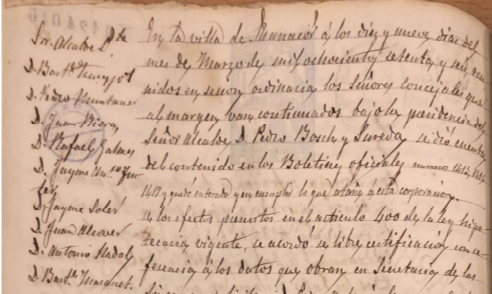 Sor. Alcalde Pte
D. Bartme
D. Pedro Muntaner
D. Juan Riera
D. Rafael Galmes
D. Jayme
D. Jayme Soler
D. Juan Alcover
D. Antonio Nadal
D. Bartme
En la villa de Manacor á los diez y nueve dias del
mes de Marzo de mil ochocientos setenta y seis, reu-
nidos en sesion ordinaria los Señores concejales que
al margen van continuados bajo la presidencia del
Señor Alcalde D. Pedro Bosch y Sureda, se dió cuenta
del contenido en los Boletines oficiales numeros
y quedó enterado y en cumplir lo que atañe a esta corporacion.
A los efectos prevenidos en el articulo 400 de la ley hipo-
tecaria vigente, se acordó se libre certificacion con re-
ferencia á los datos que obran en Secretaria de las